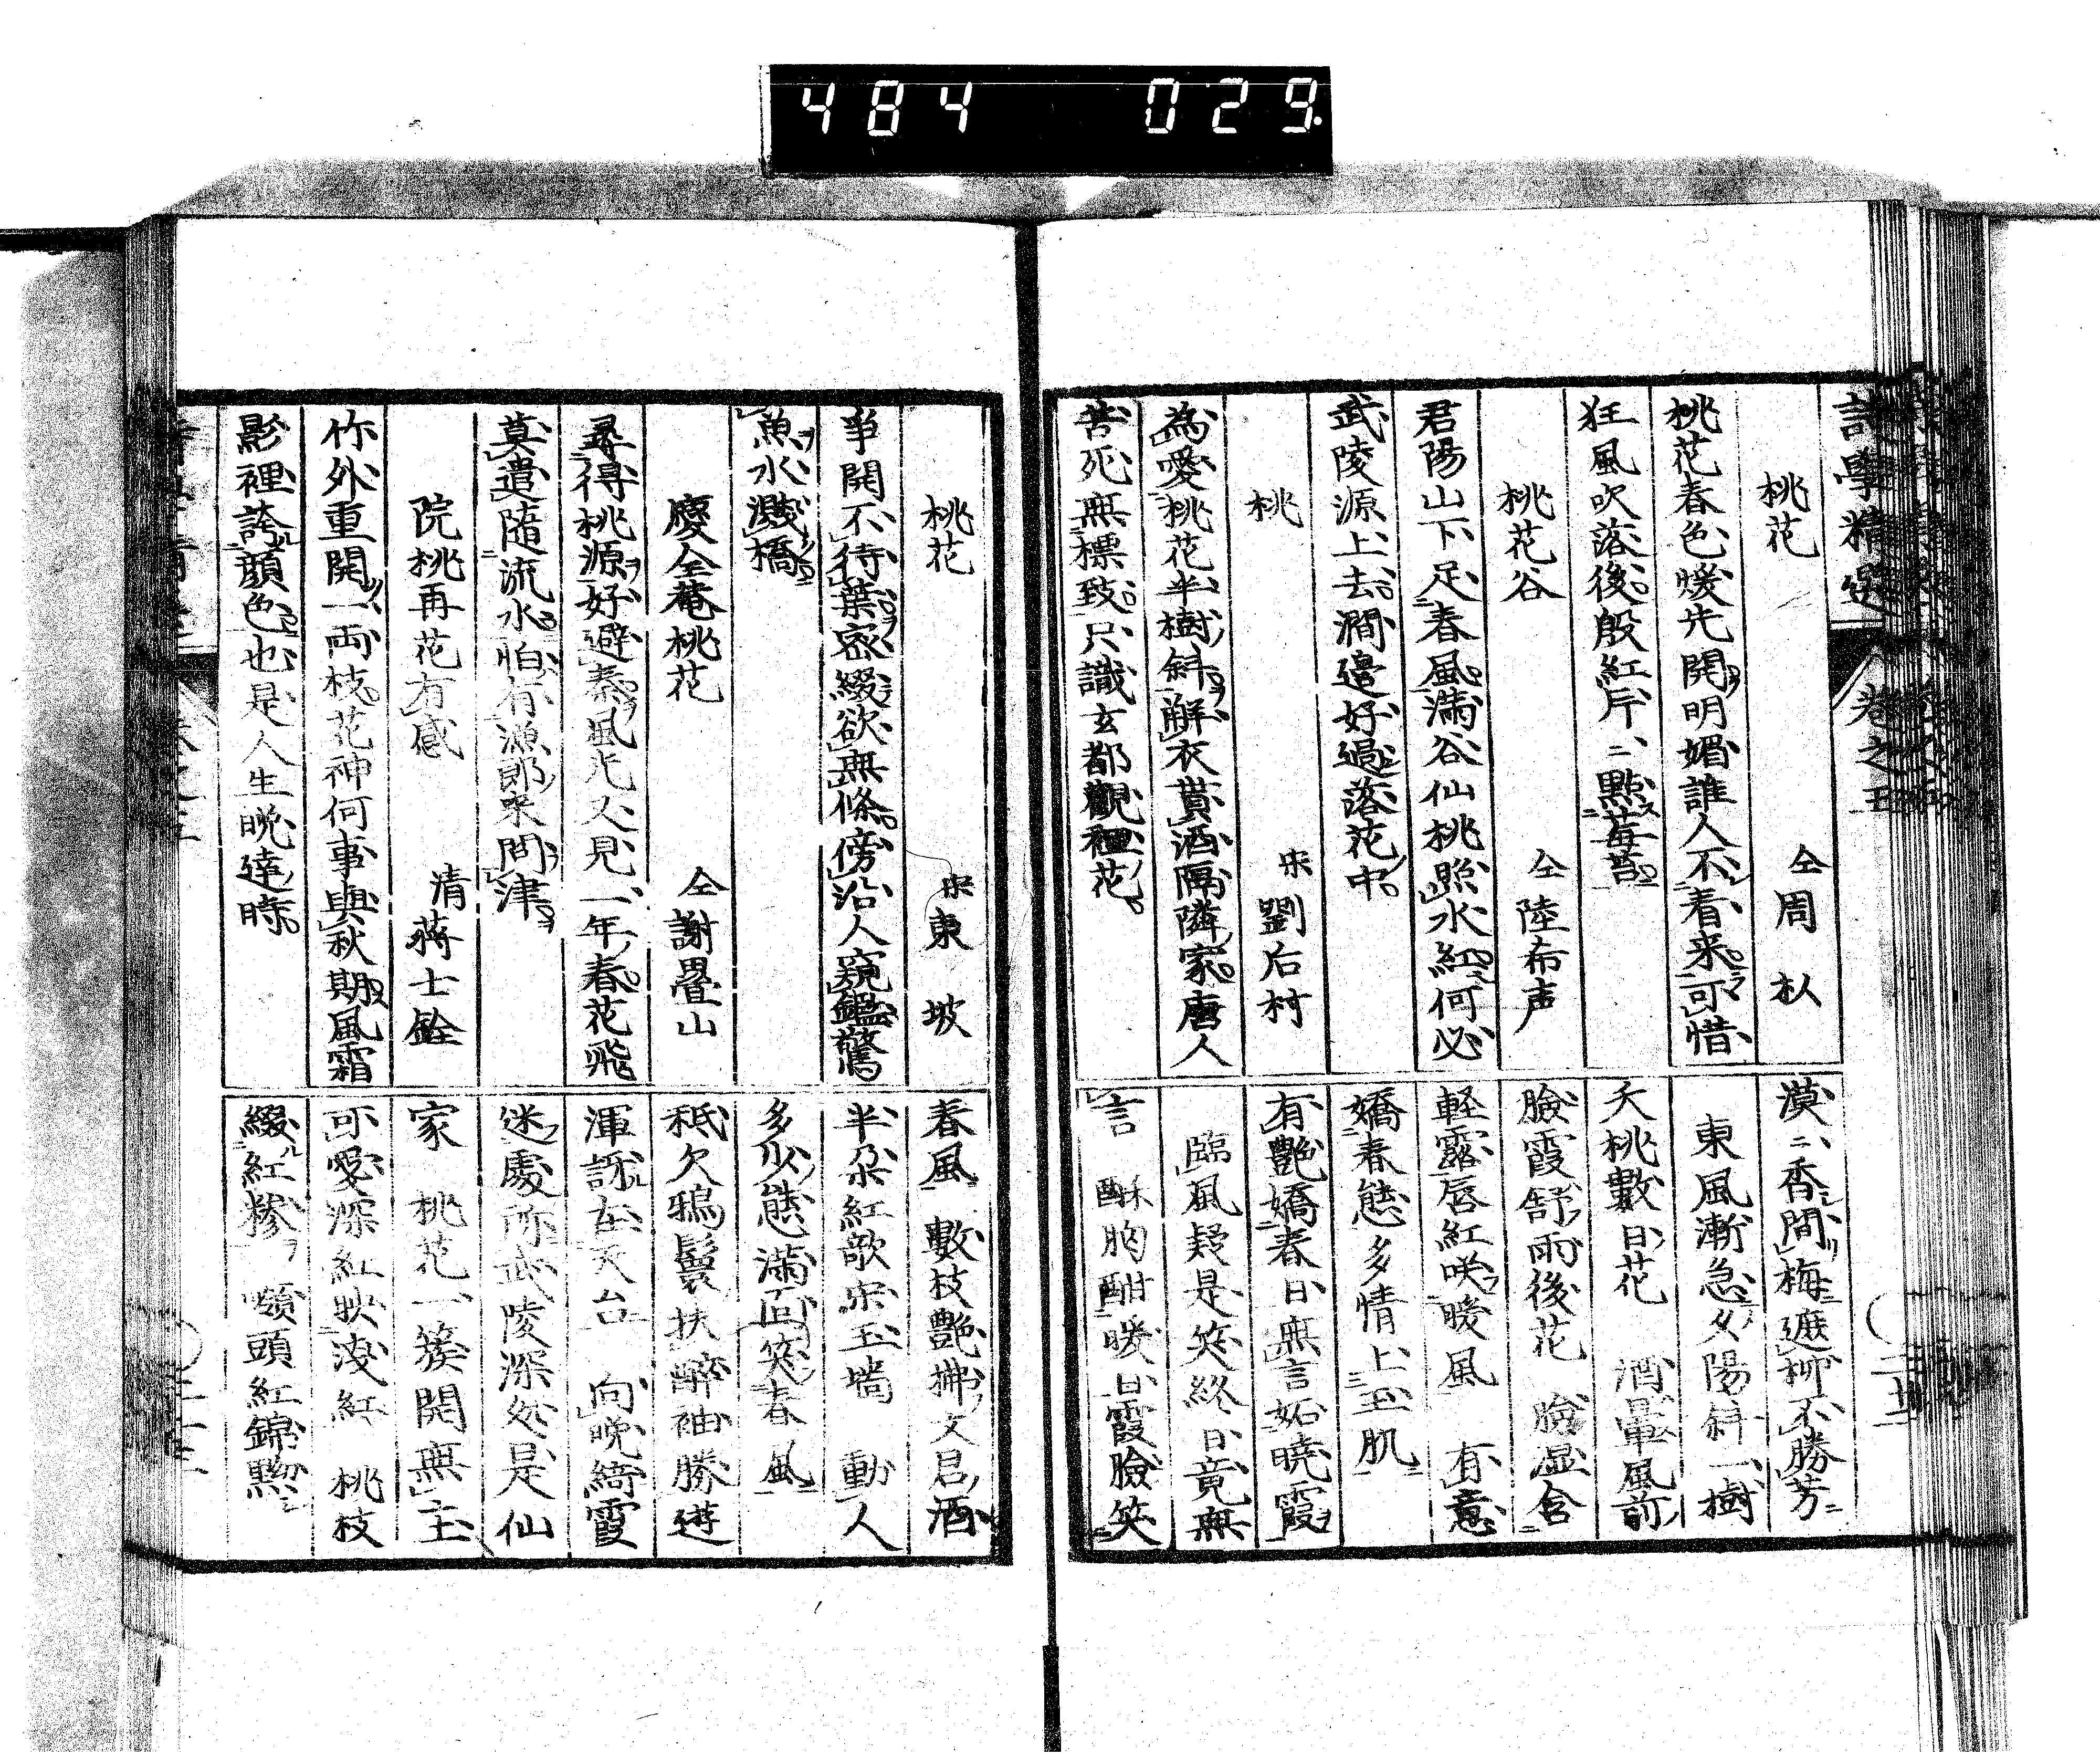 484 029
詩學精選 卷之五
桃花 仝周朴
桃花春色煖先開明媚誰人不看来可惜
狂風吹落後殷紅片二點莓苔
桃花谷 仝陸希声
君陽山下足春風満谷仙桃照水紅何必
武陵源上去澗邉好過落花中
桃 宋劉后村
為愛桃花半樹斜解衣貰酒隔隣家唐人
苦死無標致只識玄都觀裡花
漠二香間梅遮柳不勝芳
東風漸急夕陽斜一樹
夭桃數日花 酒暈風前
臉霞舒雨後花 臉湿含
軽露唇紅咲暖風 有意
嬌春態多情上玉肌
有艶嬌春日無言妬曉霞
臨風疑是笑終日竟無
言 酥胸酣暖日霞臉笑
桃花 宋東坡
爭開不待葉密綴欲無條傍沿人窺鑑驚
魚水濺橋
慶全菴桃花 仝謝疊山
尋得桃源好避秦風光又見一年春花飛
莫遣隨流水怕有漁郎来問津
院桃再花有感 清蒋士銓
竹外重開一両枝花神何事與秋期風霜
影裡誇顔色也是人生晩達時
春風 數枝艶拂文君酒
半朶紅欹宋玉墻 動人
多少態満面笑春風
秪欠鴉鬟扶醉袖勝遊
渾訝在天台 向晩綺霞
迷處所武陵深処是仙
家 桃花一簇開無主
可愛深紅映淺紅 桃枝
綴紅糝 頭紅錦